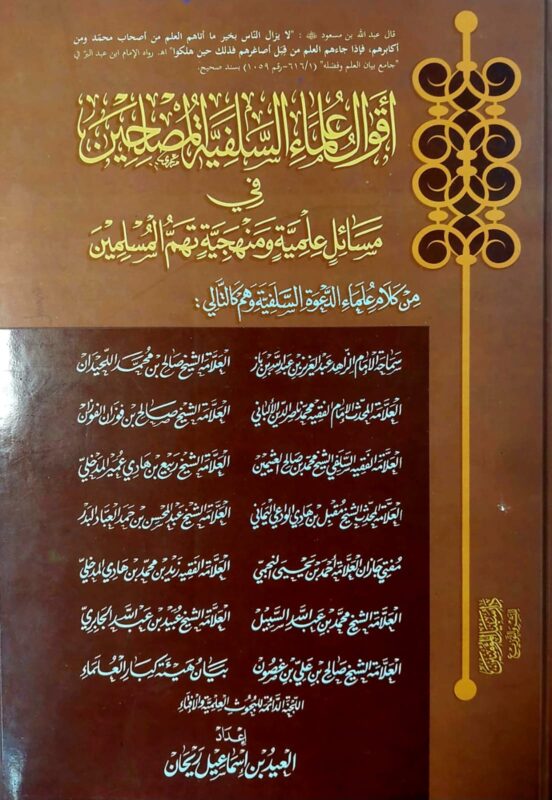 قال عبد الله بن مسعود ﷺ : "لا يزال النّاس بخير ما أتاهم العلم من أصحاب محمّد ومن
أكابرهم، فإذا جاءهم العلم من قِبَل أصاغرهم فذلك حين هلكوا" اهـ. رواه الإمام ابن عبد البرّ في
"جامع بيان العلم وفضله" (٦١٦/١-رقم ١٠٥٩) بسند صحيح.
أقوال علماء السلفية المصلحين
في
مسائل علمية ومنهجية تهم المسلمين
من كلام علماء الدعوة السلفية وهم كالتالي:
سماحة الإمام الزاهد عبد العزيز بن عبد الله بن باز
العلامة الشيخ صالح بن محمد اللحيدان
العلامة المحدث الإمام الفقيه محمد ناصر الدين الألباني
العلامة الشيخ صالح بن فوزان الفوزان
العلامة الفقيه السلفي الشيخ محمد بن صالح العثيمين
العلامة الشيخ ربيع بن هادي عمير المدخلي
العلامة المحدث الشيخ مقبل بن هادي الوادعي اليماني
العلامة الشيخ عبد المحسن بن حمد العباد البدر
مفتي جازان العلامة أحمد بن يحيى النجمي
العلامة الفقيه زيد بن محمد بن هادي المدخلي
العلامة الشيخ محمد بن عبد الله السبيل
العلامة الشيخ عبيد بن عبد الله الجابري
العلامة الشيخ صالح بن علي بن غصون
بيان هيئة كبار العلماء
اللجنة الدائمة للبحوث العلمية والإفتاء
إعداد
العيد بن إسماعيل ريحان